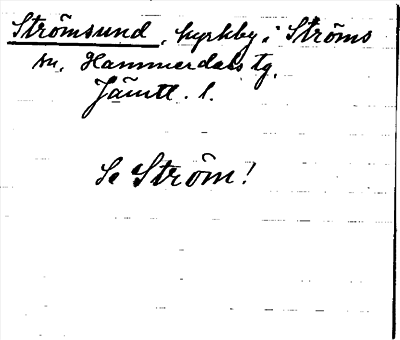 Strömsund, kyrkby i Ströms
sn, Hammerdals tg,
Jämtl. l.
Se Ström!